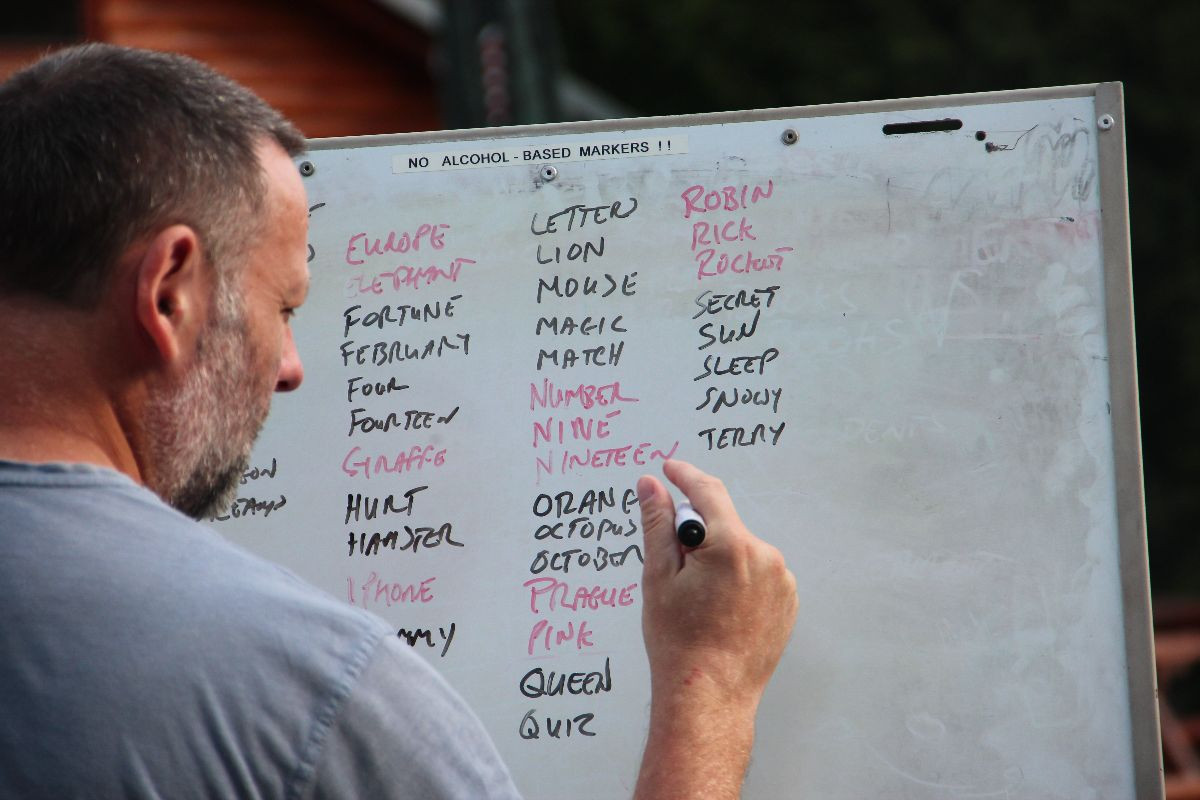 NO ALCOHOL-BASED MARKERS !!
EUROPE
ELEPHANT
FORTUNE
FEBRUARY
FOUR
FOURTEEN
GIRAFFE
HURT
HAMSTER
IPHONE
LETTER
LION
MOUSE
MAGIC
MATCH
NUMBER
NINE
NINETEEN
ORANG
OCTOPUS
OCTOBER
PRAGUE
PINK
QUEEN
QUIZ
ROBIN
RICK
ROCKET
SECRET
SUN
SLEEP
SNOWY
TERRY